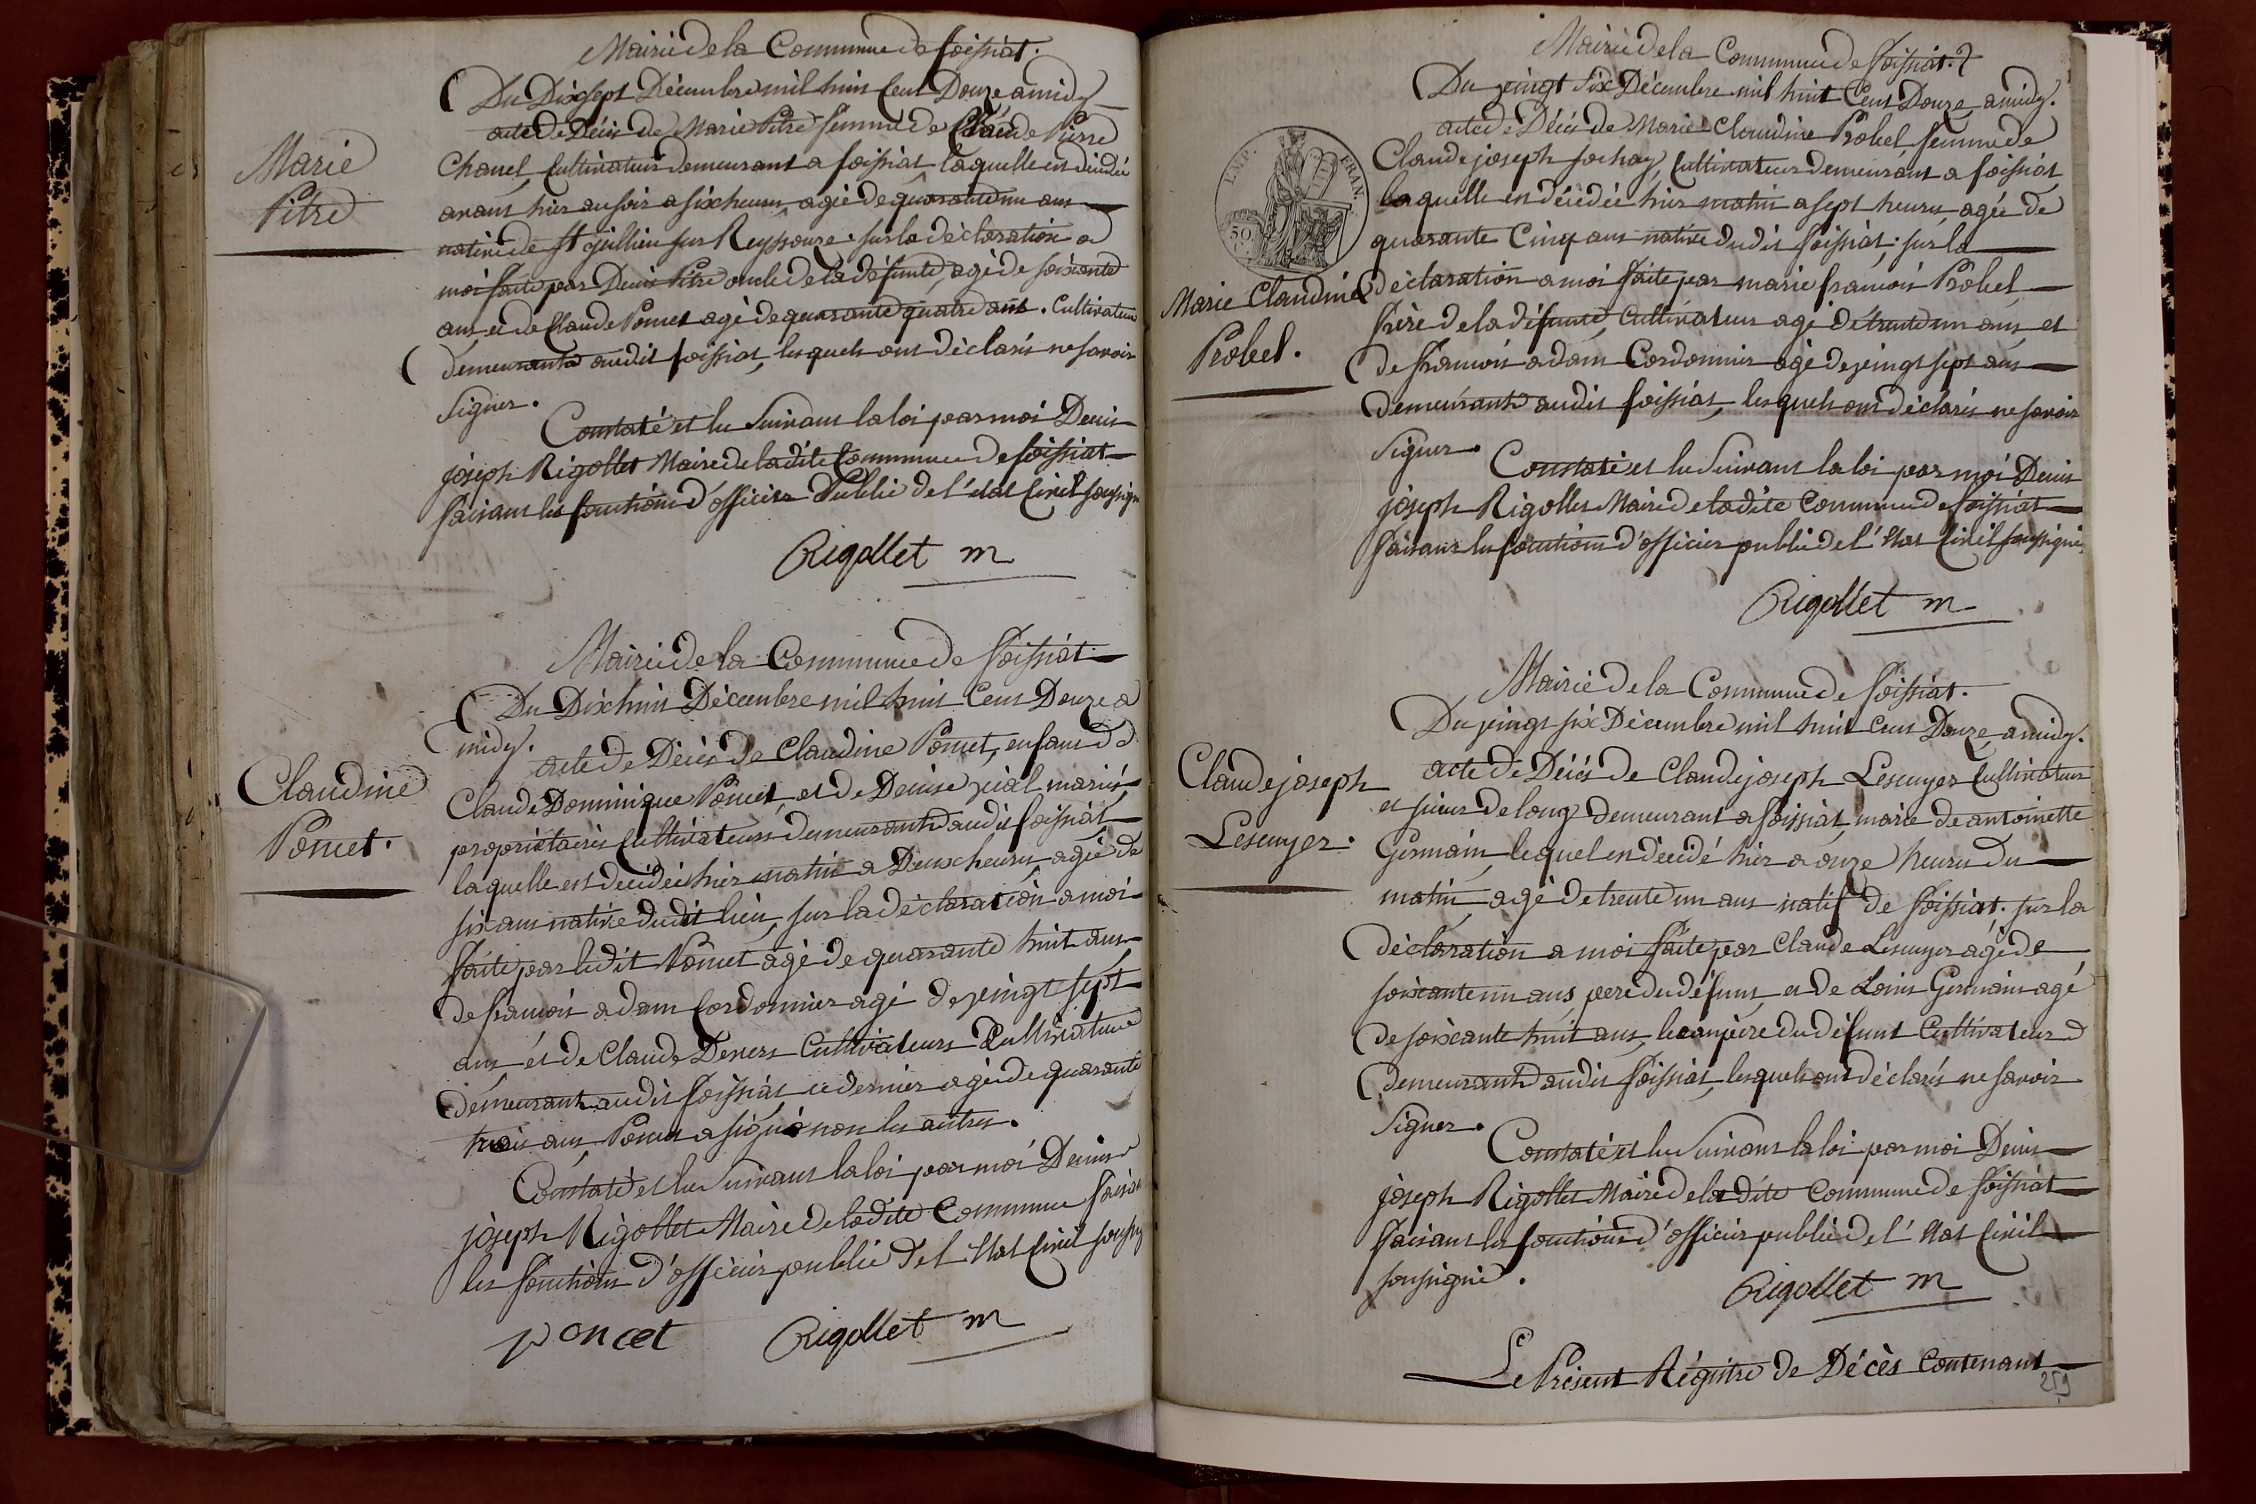 Mairie de la Commune de foissiat.
Du Dix sept Décembre mil huit Cent Douze a midy
acte de Décès de Marie Pitre femme de Claude Pierre
Chanel, Cultivateur demeurant a foissiat laquelle est décédée
avant hier au soir a six heures agée de quarante un ans
native de St jullien sur Reyssouze sur la déclaration a
moi faite par Denis Pitre oncle de la défunte, agé de soixante
ans, et de Claude Poncet agé de quarante quatre ans. Cultivateurs
demeurants audit foissiat, lesquels ont déclarés ne savoir
signer.
Constaté et lu suivant la loi par moi Denis
joseph Rigollet Maire de la dite Commune de foissiat
faisant les fonctions d'officier Public de l'état Civil soussigné
Rigollet m
Marie
Pitre
Mairie de la Commune de foissiat
Du Dix huit Décembre mil huit Cent Douze a
midy.
acte de Décès de Claudine Poncet, enfant de
Claude Dominique Poncet, et de Denise vial mariés
propriétaires Cultivateurs demeurants audit foissiat
laquelle est décédée hier matin a Deux heures, agée de
six ans native dudit lieu, sur la déclaration a moi
faite par ledit Poncet agé de quarante huit ans
de francois adam Cordonnier agé de vingt sept
ans et de Claude Deners Cultivateurs
demeurant audit foissiat ce dernier agé de quarante
trois ans, Poncet a signé non les autres.
Constaté et lu suivant la loi par moi Denis
joseph Rigollet Maire de ladite Commune faisant
les fonctions d'officier public de l'état Civil soussig
poncet Rigollet m
Claudine
Poncet.
Mairie de la Commune de foissiat.
Du vingt six Décembre mil huit Cent Douze a midy.
acte de Décès de Marie Claudine Probel femme de
Claude joseph sochay, Cultivateur demeurant a foissiat
laquelle est décédée hier matin a sept heures, agée de
quarante Cinq ans native dudit foissiat; sur la
déclaration a moi faite par marie francois Probel
frère de la défunte, Cultivateur agé de trente un ans, et
de francois adam Cordonnier agé de vingt sept ans
demeurants audit foissiat, lesquels ont déclarés ne savoir
signer.
Constaté et lu suivant la loi par moi Denis
joseph Rigollet Maire de la dite Commune de foissiat
faisant les fonctions d'officier public de l'état Civil soussigné.
Rigollet m
EMP. FRAN.
50
Marie Claudine
Probel.
Mairie de la Commune de foissiat.
Du vingt six Décembre mil huit cent Douze, a midy.
acte de Décès de Claude joseph Lescuyer Cultivateur
et scieur de long demeurant a foissiat, marié de antoinette
Germain, lequel est décédé hier a onze heures du
matin, agé de trente un ans natif de foissiat. sur la
déclaration a moi faite par Claude Lescuyer agé de
soixante un ans père du défunt et de Louis Germain agé
de soixante huit ans, beaupère du défunt Cultivateurs
demeurants audit foissiat, lesquels ont déclarés ne savoir
signer.
Constaté et lu suivant la loi par moi Denis
joseph Rigollet Maire de la dite Commune de foissiat
faisant les fonctions d'officier public de l'état Civil
soussigné.
Rigollet m
Claude joseph
Lescuyer.
Le Présent Régitre de Décès Contenant
259